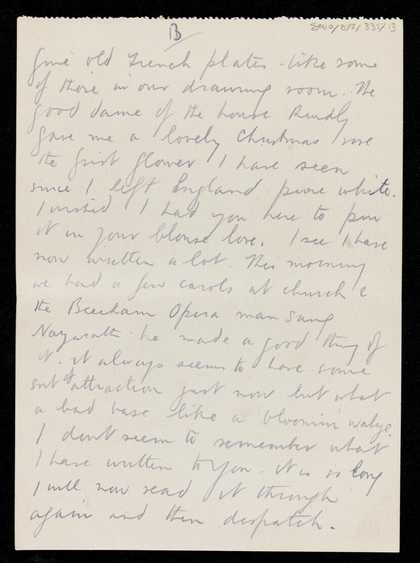 B
fine old French plates - like some
of those in our drawing room. The
good dame of the house kindly
gave me a lovely Christmas rose
the first flower I have seen
since I left England pure white.
I wished I had you here to pin
it in your blouse love. I see I have
now written a lot. This morning
we had a few carols at church &
the Beecham Opera man sang
Nazareth. he made a good thing of
it. it always seems to have some
sort of attraction just now but what
a bad base like a bloomin walze.
I dont seem to remember what
I have written to you. it is so long
I will now read it through
again and then despatch.